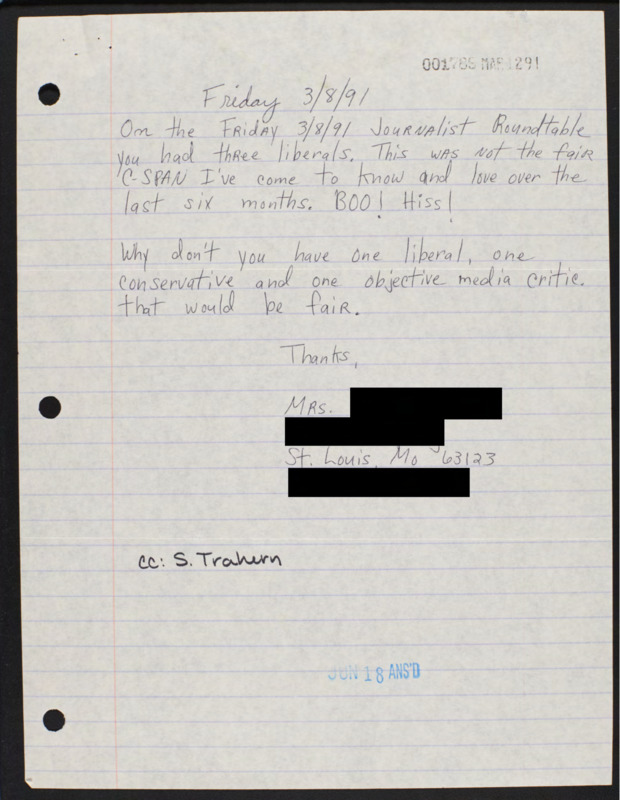 001765 MAR 1291
Friday 3/8/91
On the Friday 3/8/91 Journalist Roundtable
you had three liberals. This was not the fair
C-SPAN I've come to know and love over the
last six months. BOO! Hiss!
Why don't you have one liberal, one
conservative and one objective media critic.
that would be fair.
Thanks,
Mrs.
St. Louis, Mo 63123
cc: S. Trahern
JUN 18 ANS'D